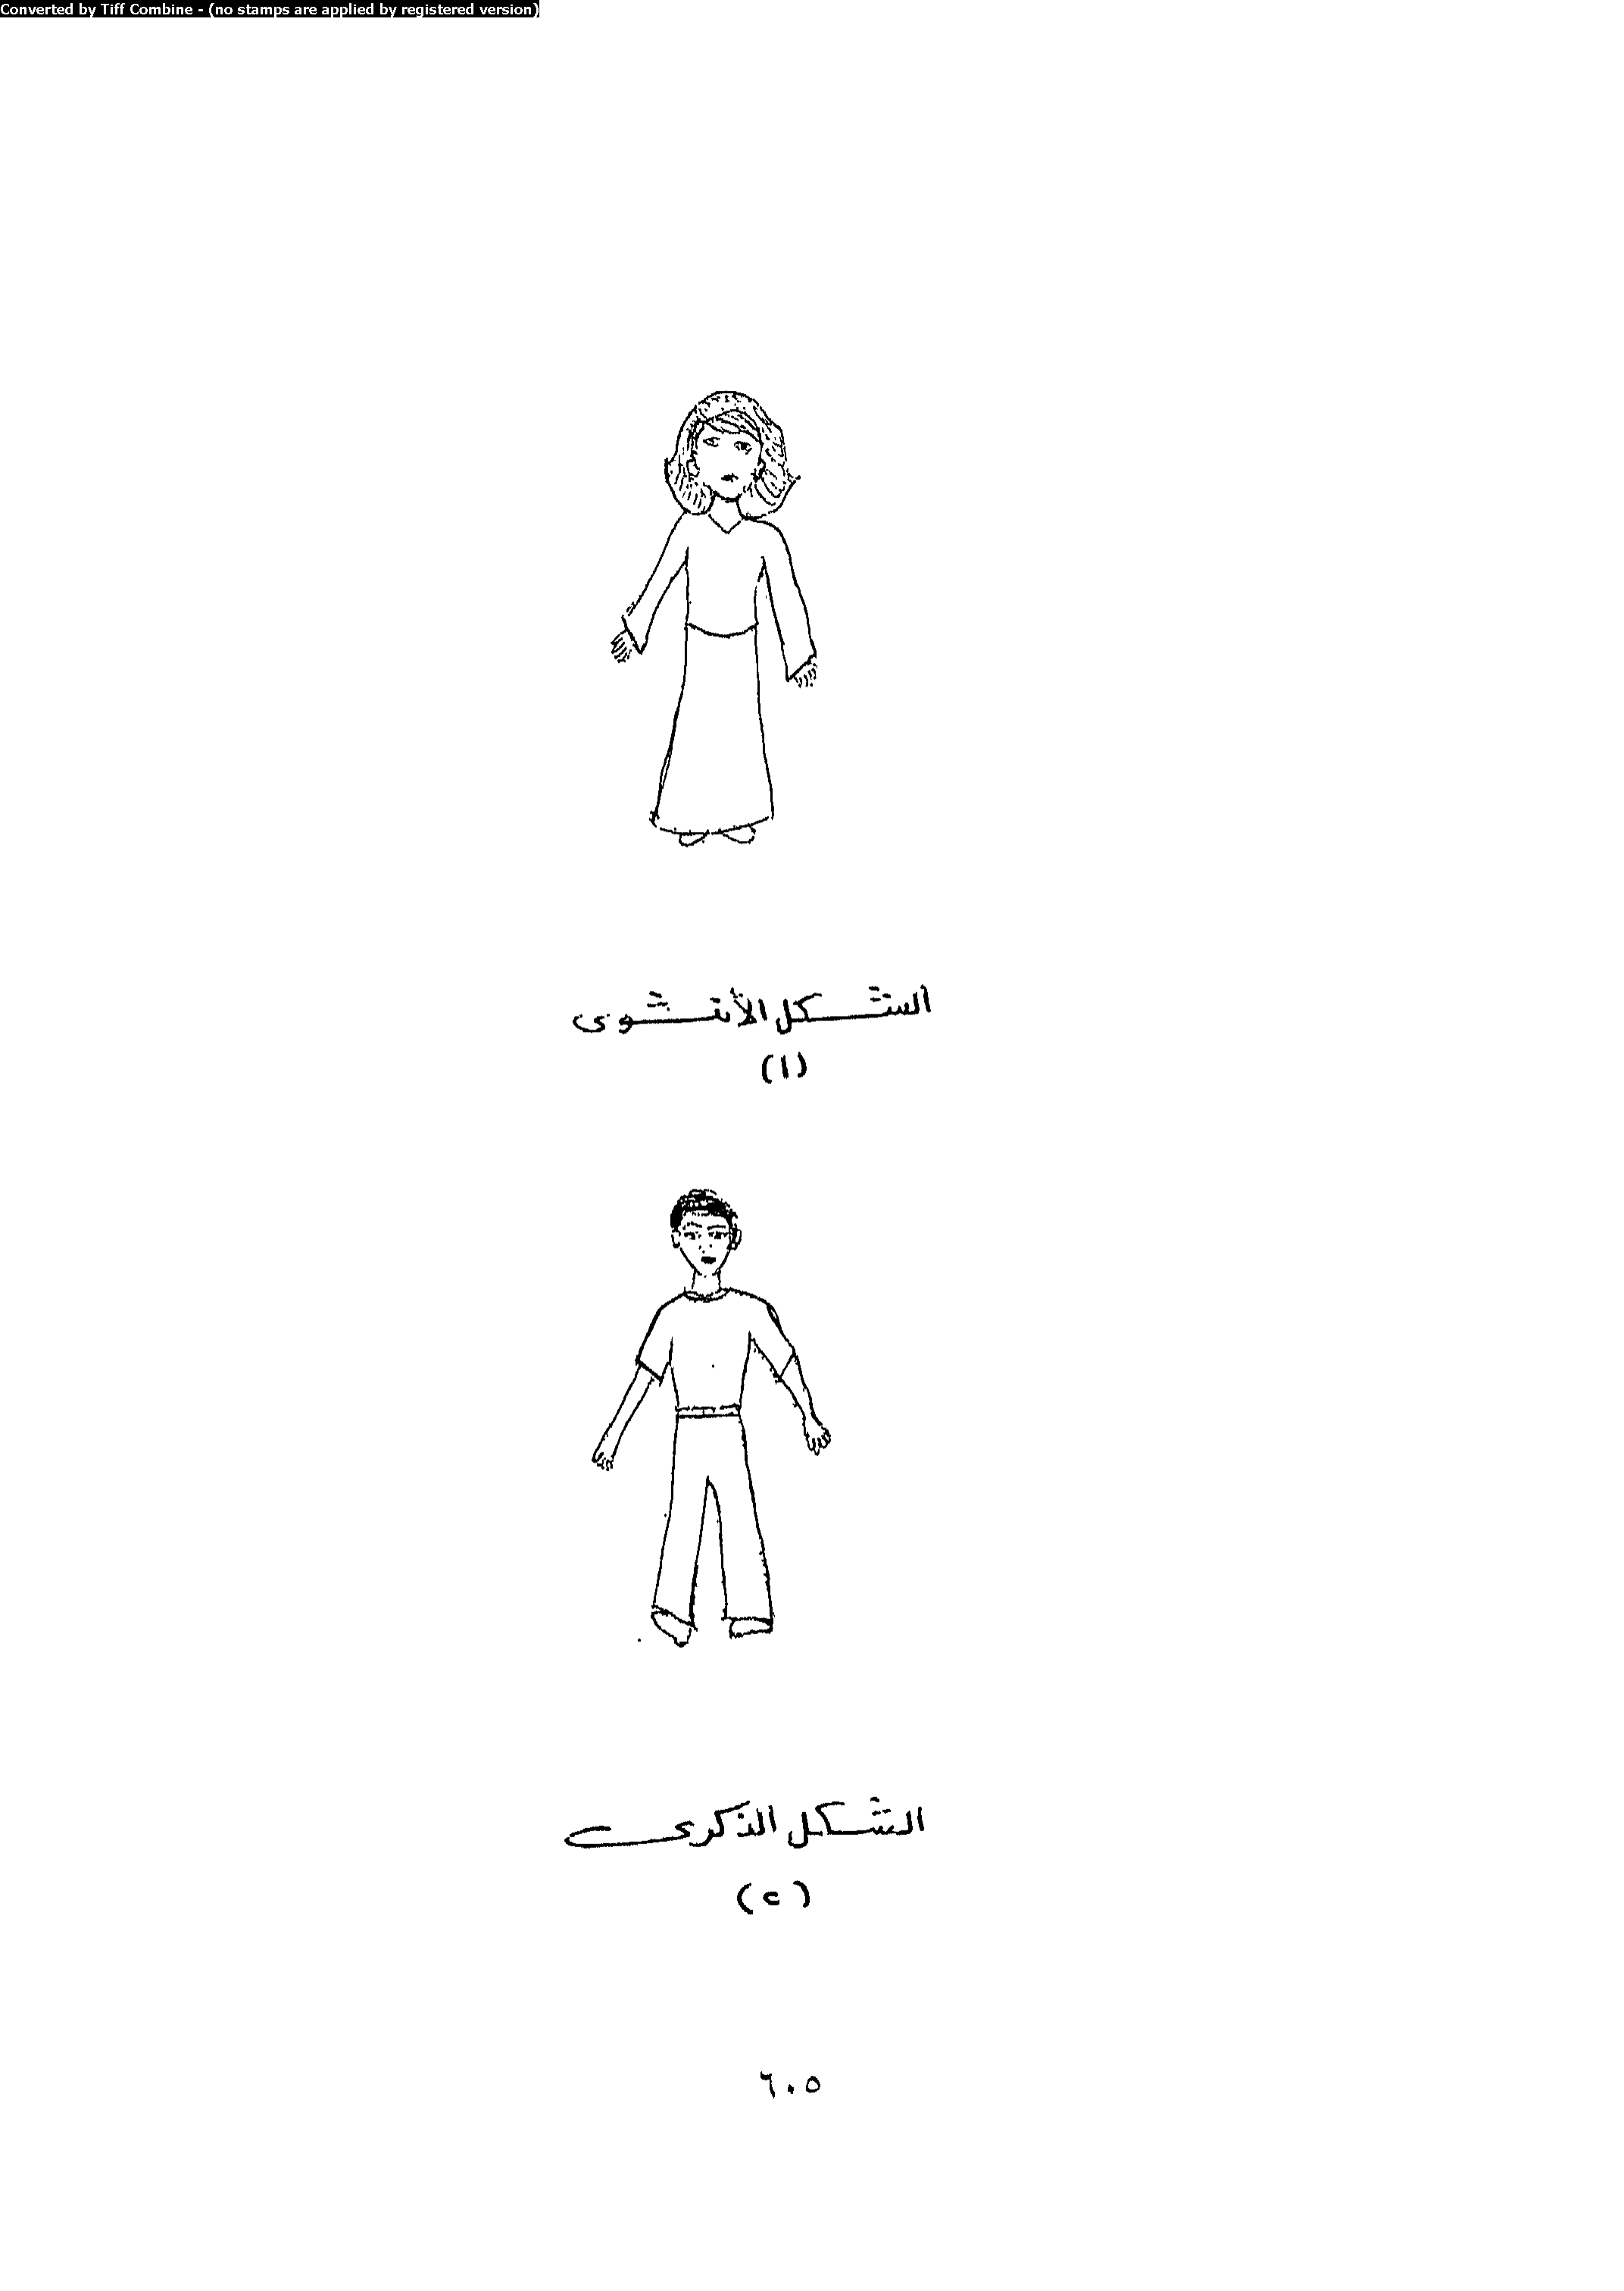 Converted by Tiff Combine - (no stamps are applied by registered version)
الشكل الأنثوى
(١)
الشكل الذكرى
(٢)
٦٠٥